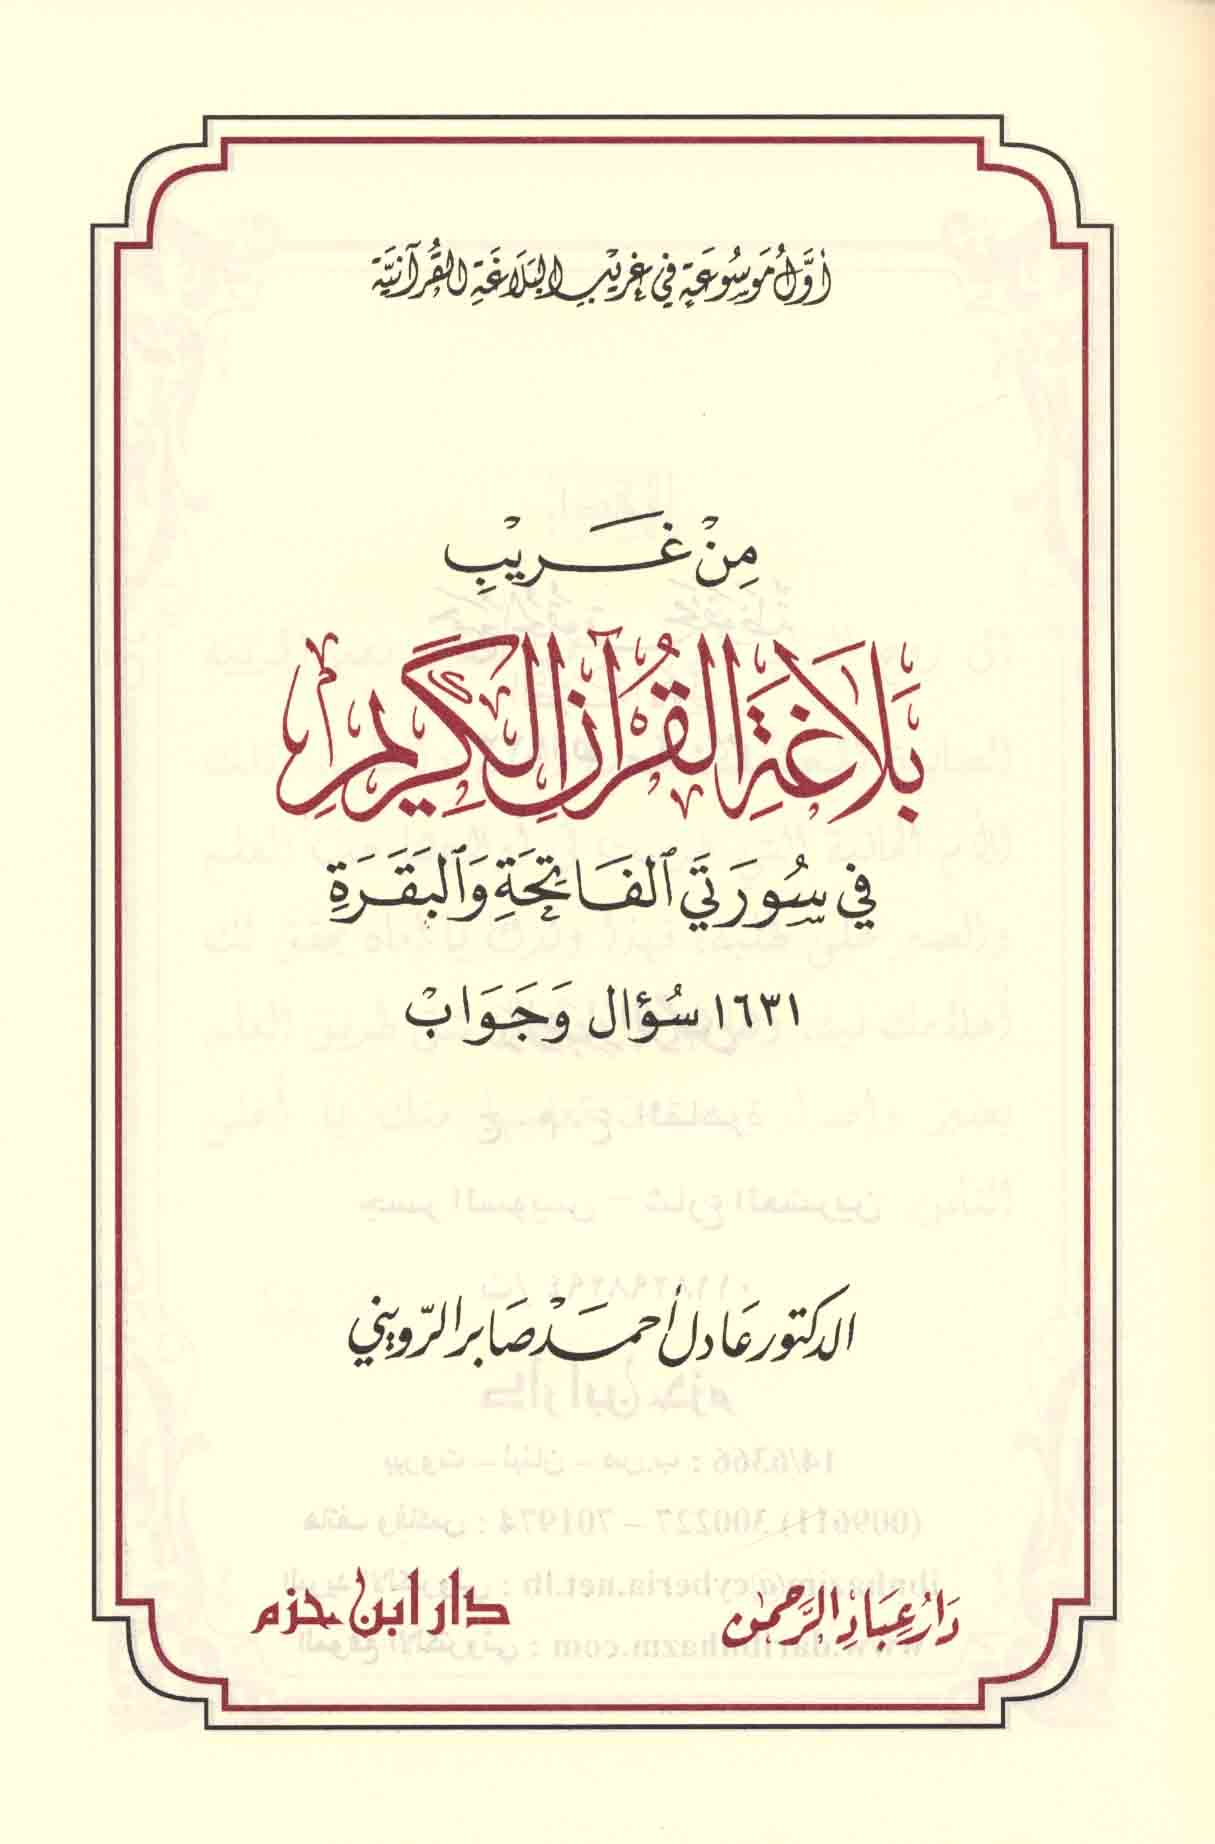 أَوَّلُ مَوْسُوعَةٍ فِي غَرِيْبِ البَلَاغَةِ القُرْآنِيَّة
مِنْ غَرِيْبِ
بَلَاغَةِ القُرْآنِ الكَرِيْمِ
فِي سُورَتَيِ الفَاتِحَةِ وَالبَقَرَةِ
١٦٣١ سُؤال وَجَوَابْ
الدكتور عَادل أحمَد صَابر الرّويني
دَارُ عِبَادِ الرَّحمن
دار ابن حزم